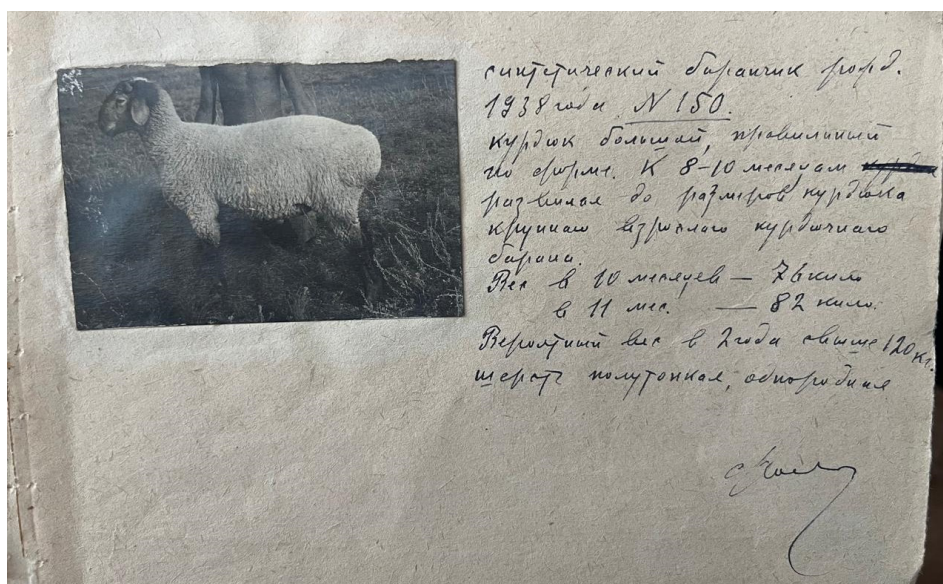 синтетический баранчик рожд.
1938 года N 150.
курдюк большой, правильный
по форме. К 8-10 месяцам
развился до размеров курдюка
крупного взрослого курдючного
барана.
Вес в 10 месяцев — 76 кило
в 11 мес. — 82 кило.
Вероятный вес в 2 года свыше 120 кг.
шерсть полутонкая, однородная